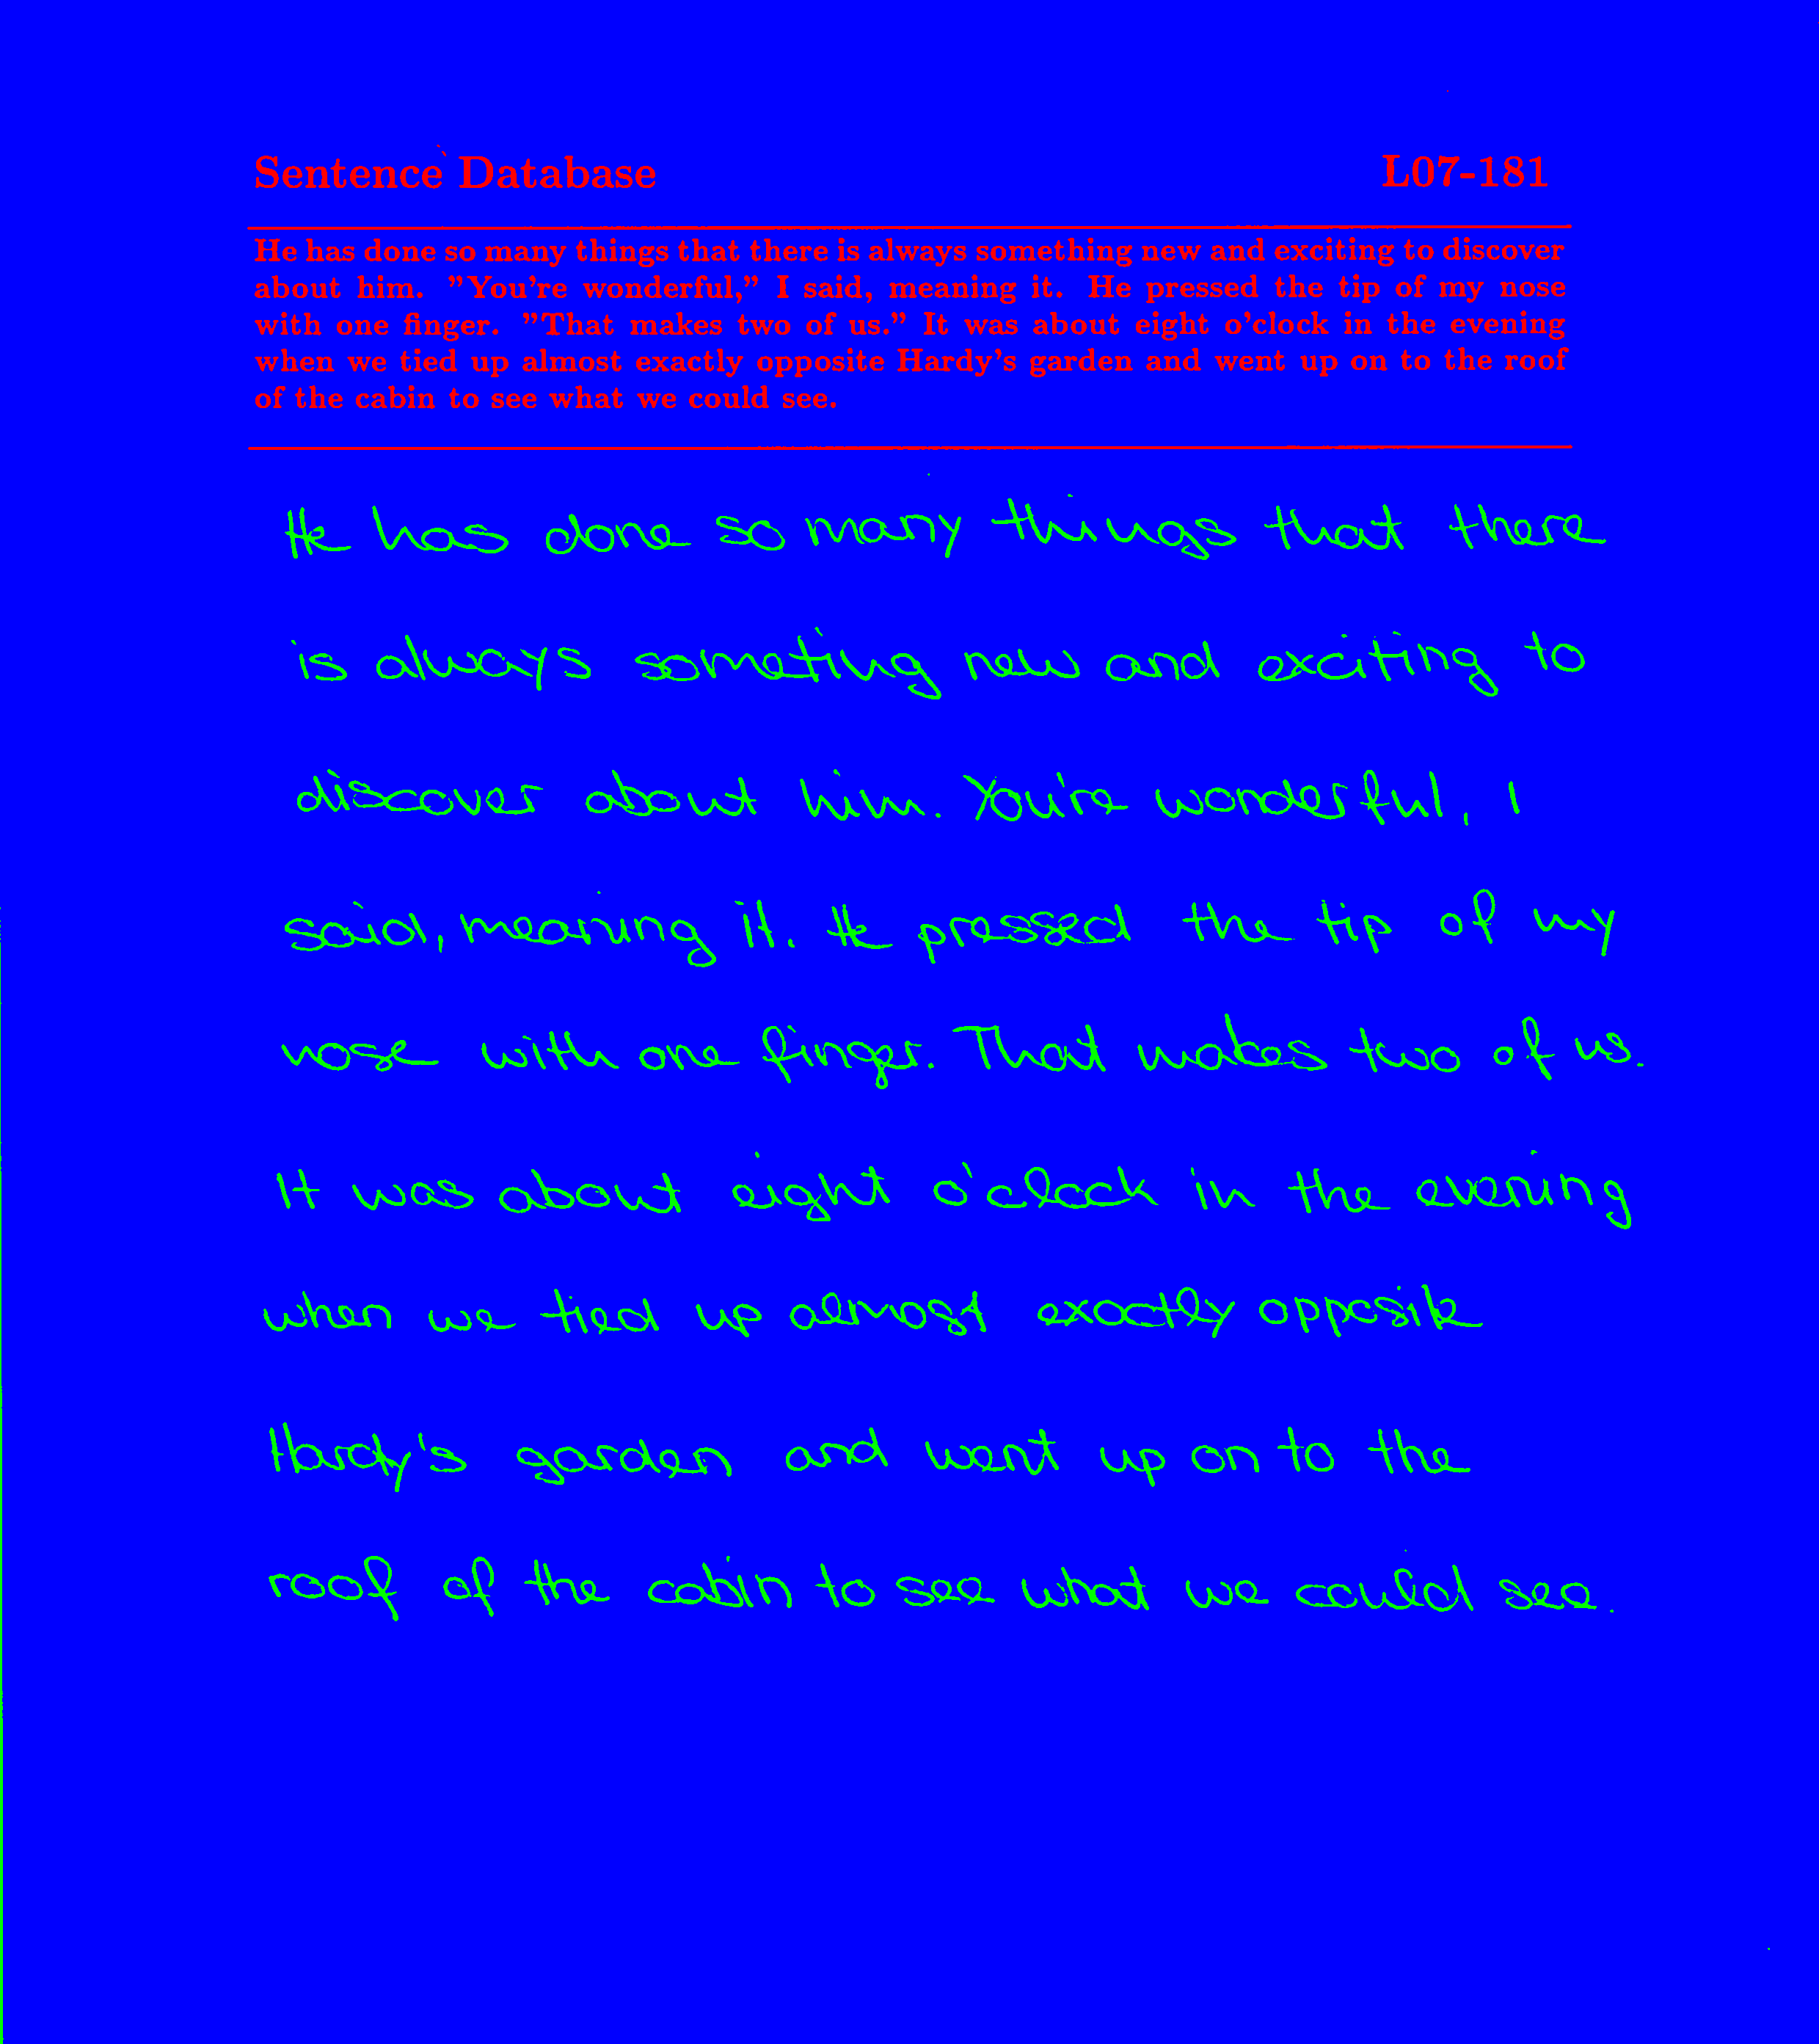 Sentence Database L07-181
He has done so many things that there is always something new and exciting to discover
about him. "You're wonderful," I said, meaning it. He pressed the tip of my nose
with one finger. "That makes two of us." It was about eight o'clock in the evening
when we tied up almost exactly opposite Hardy's garden and went up on to the roof
of the cabin to see what we could see.
He has done so many things that there
is always someting new and exciting to
discover about him. You're wonderful, I
said, meaning it. He pressed the tip of my
nose with one finger. That makes two of us.
It was about eight o'clock in the evening
when we tied up almost exactly opposite
Hardy's garden and went up on to the
roof of the cabin to see what we could see.